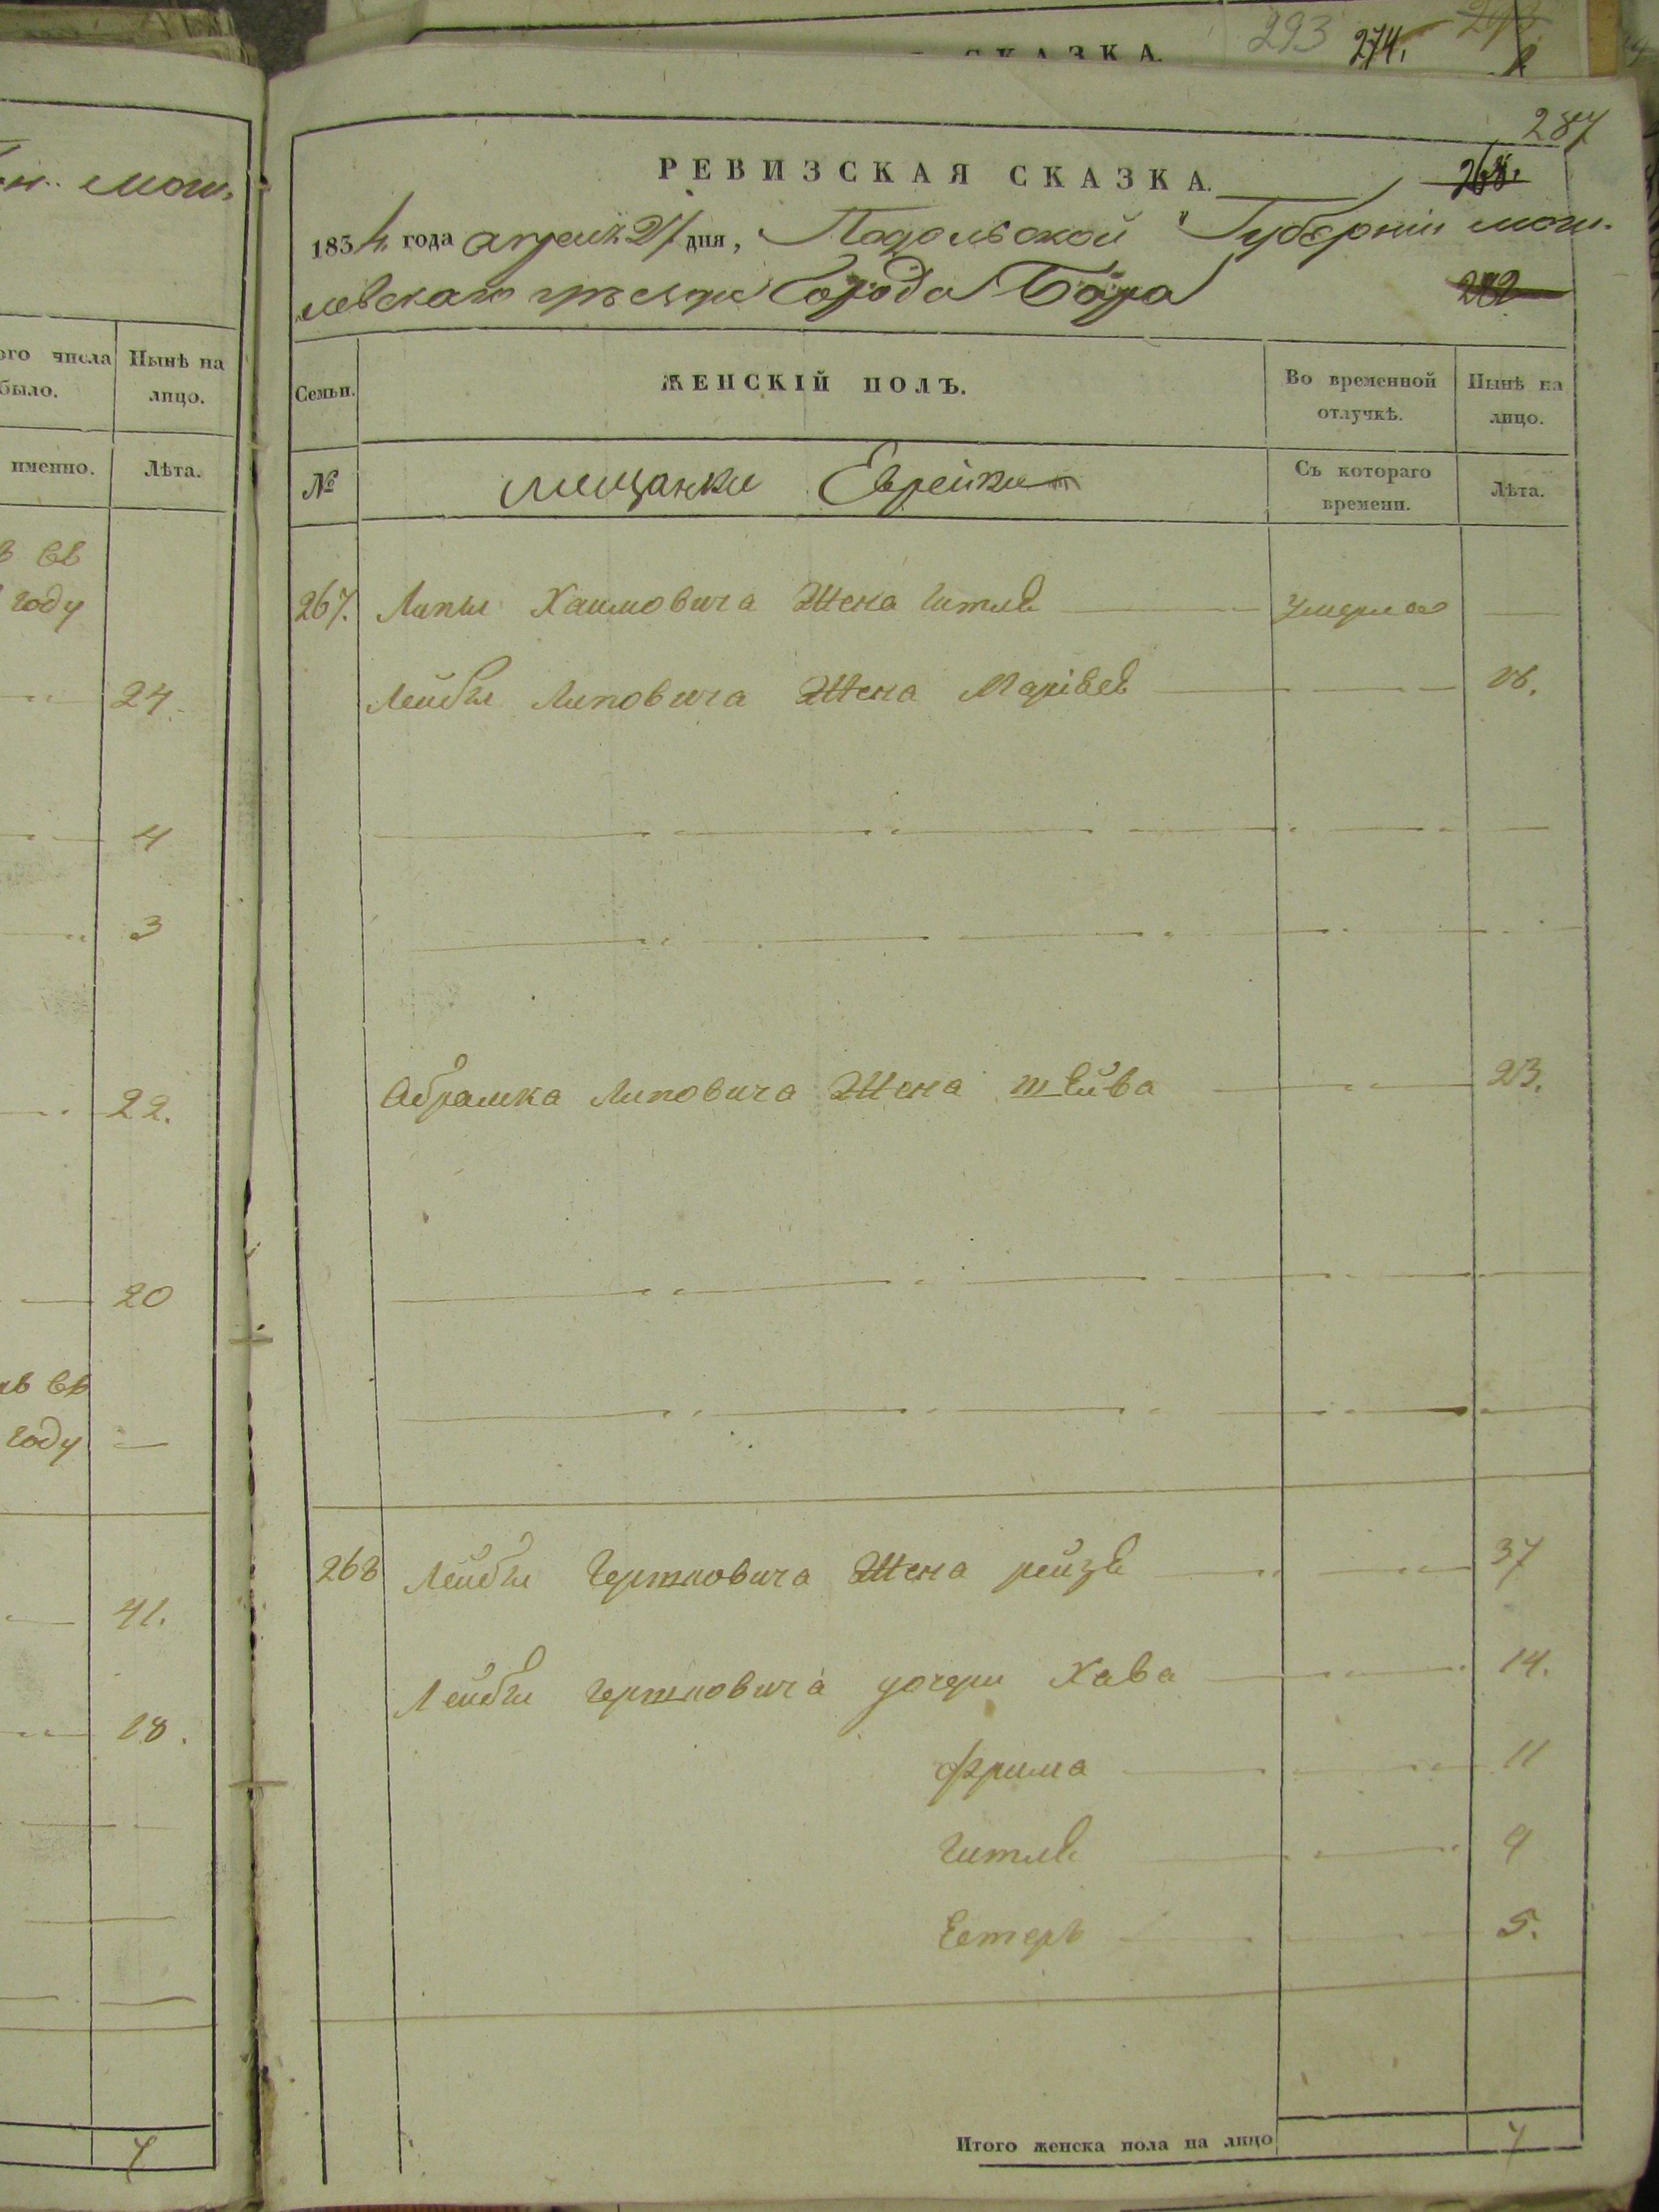 СКАЗКА.
293 274.
287
РЕВИЗСКАЯ СКАЗКА.
268.
1834 года апреля 27 дня, Подольской Губерніи моги-
левскаго уезда Города Бара
282
Семьи.
ЖЕНСКІЙ ПОЛЪ.
Во временной отлучкѣ.
Нынѣ на лицо.
№
мещанки Еврейки
Съ котораго времени.
Лѣта.
267. Липы Хаимовича Жена Гитля умерла
Лейбы Липовича Жена Маріѣсѣ 18.
Абрамка Липовича Жена Шейва 23.
268 Лейбы Гершковича Жена рейзя 37
Лейбы гершковича дочери Хава 14.
фрима 11
Гитля 9
Естеръ 5.
Итого женска пола на лицо 7
ого числа было.
Нынѣ на лицо.
именно.
Лѣта.
въ
году
24.
4
3
22.
20
въ
году
41.
18.
7